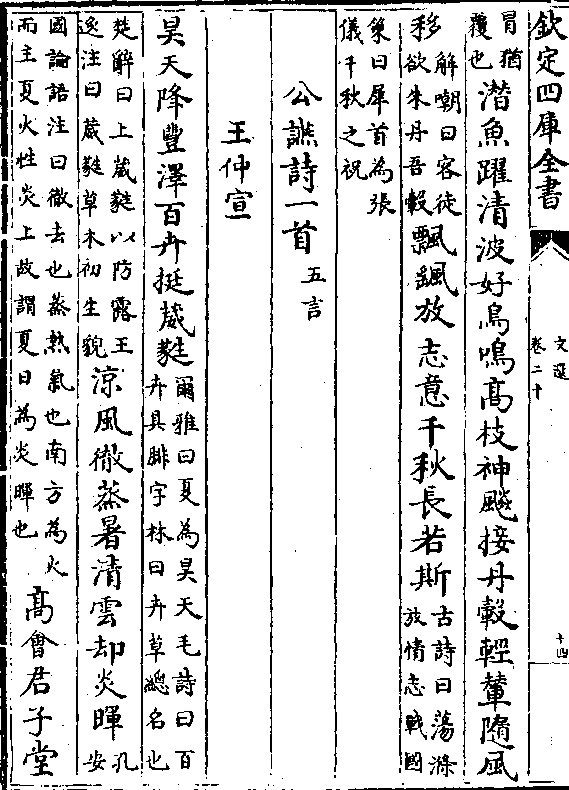 欽定四庫全書
文選
卷二十
十四
冒猶
覆也
潛魚躍清波好鳥鳴髙枝神飇接丹轂輕輦隨風
移
解嘲曰客徒
欲朱丹吾轂
飄颻放志意千秋長若斯
古詩曰蕩滌
放情志戰國
策曰犀首為張
儀千秋之祝
公讌詩一首
五言
王仲宣
昊天降豐澤百卉挺葳蕤
爾雅曰夏為昊天毛詩曰百
卉具腓字林曰卉草總名也
楚辭曰上葳蕤以防露王
逸注曰葳蕤草木初生貌
涼風徹蒸暑清雲却炎暉
孔
安
國論語注曰徹去也蒸熱氣也南方為火
而主夏火性炎上故謂夏日為炎暉也
髙會君子堂